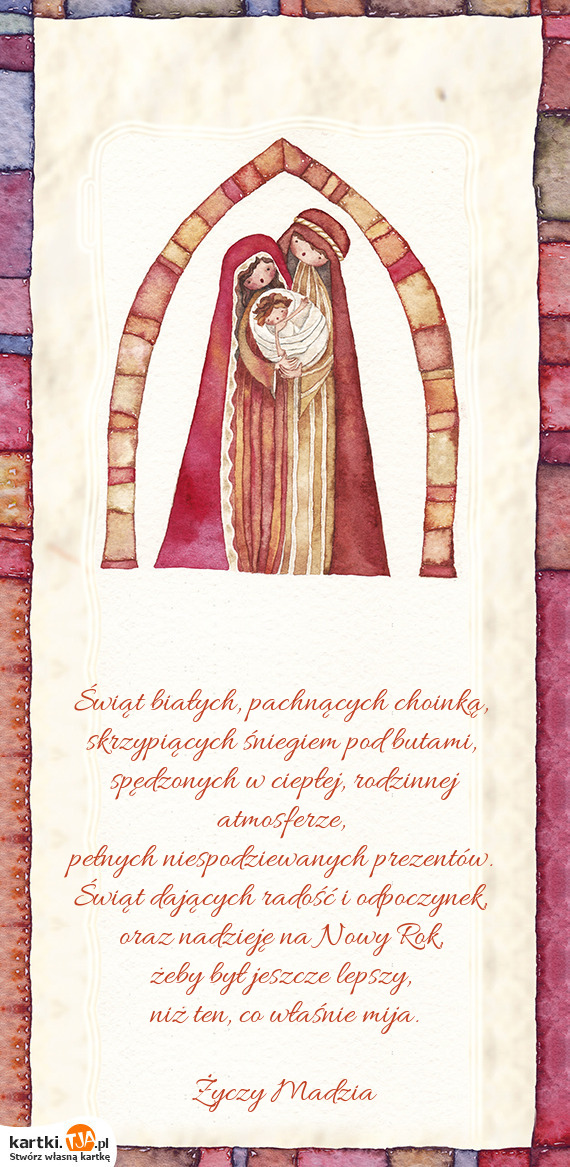 Świąt białych, pachnących choinką,
skrzypiących śniegiem pod butami,
spędzonych w ciepłej, rodzinnej
atmosferze,
pełnych niespodziewanych prezentów.
Świąt dających radość i odpoczynek,
oraz nadzieję na Nowy Rok,
żeby był jeszcze lepszy,
niż ten, co właśnie mija.
Życzy Madzia
kartki.TJA.pl
Stwórz własną kartkę